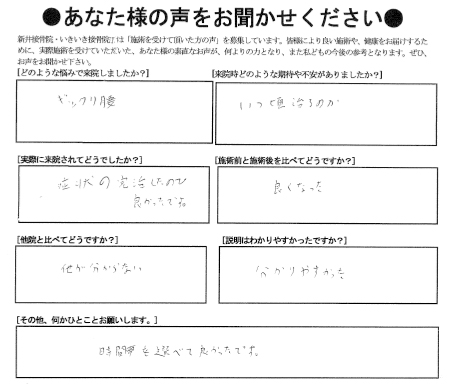 ●あなた様の声をお聞かせください●
新井接骨院・いきいき接骨院では「施術を受けて頂いた方の声」を募集しています。皆様により良い施術や、健康をお届けするた
めに、実際施術を受けていただいた、あなた様の素直なお声が、何よりの力となり、また私どもの今後の参考となります。ぜひ、
お声をお聞かせ下さい。
[どのような悩みで来院しましたか？]
ギックリ腰
[来院時どのような期待や不安がありましたか？]
いつ頃治るのか
[実際に来院されてどうでしたか？]
症状の完治したので
良かったです。
[施術前と施術後を比べてどうですか？]
良くなった
[他院と比べてどうですか？]
他が分からない
[説明はわかりやすかったですか？]
分かりやすかった
[その他、何かひとことお願いします。]
時間帯を選べて良かったです。